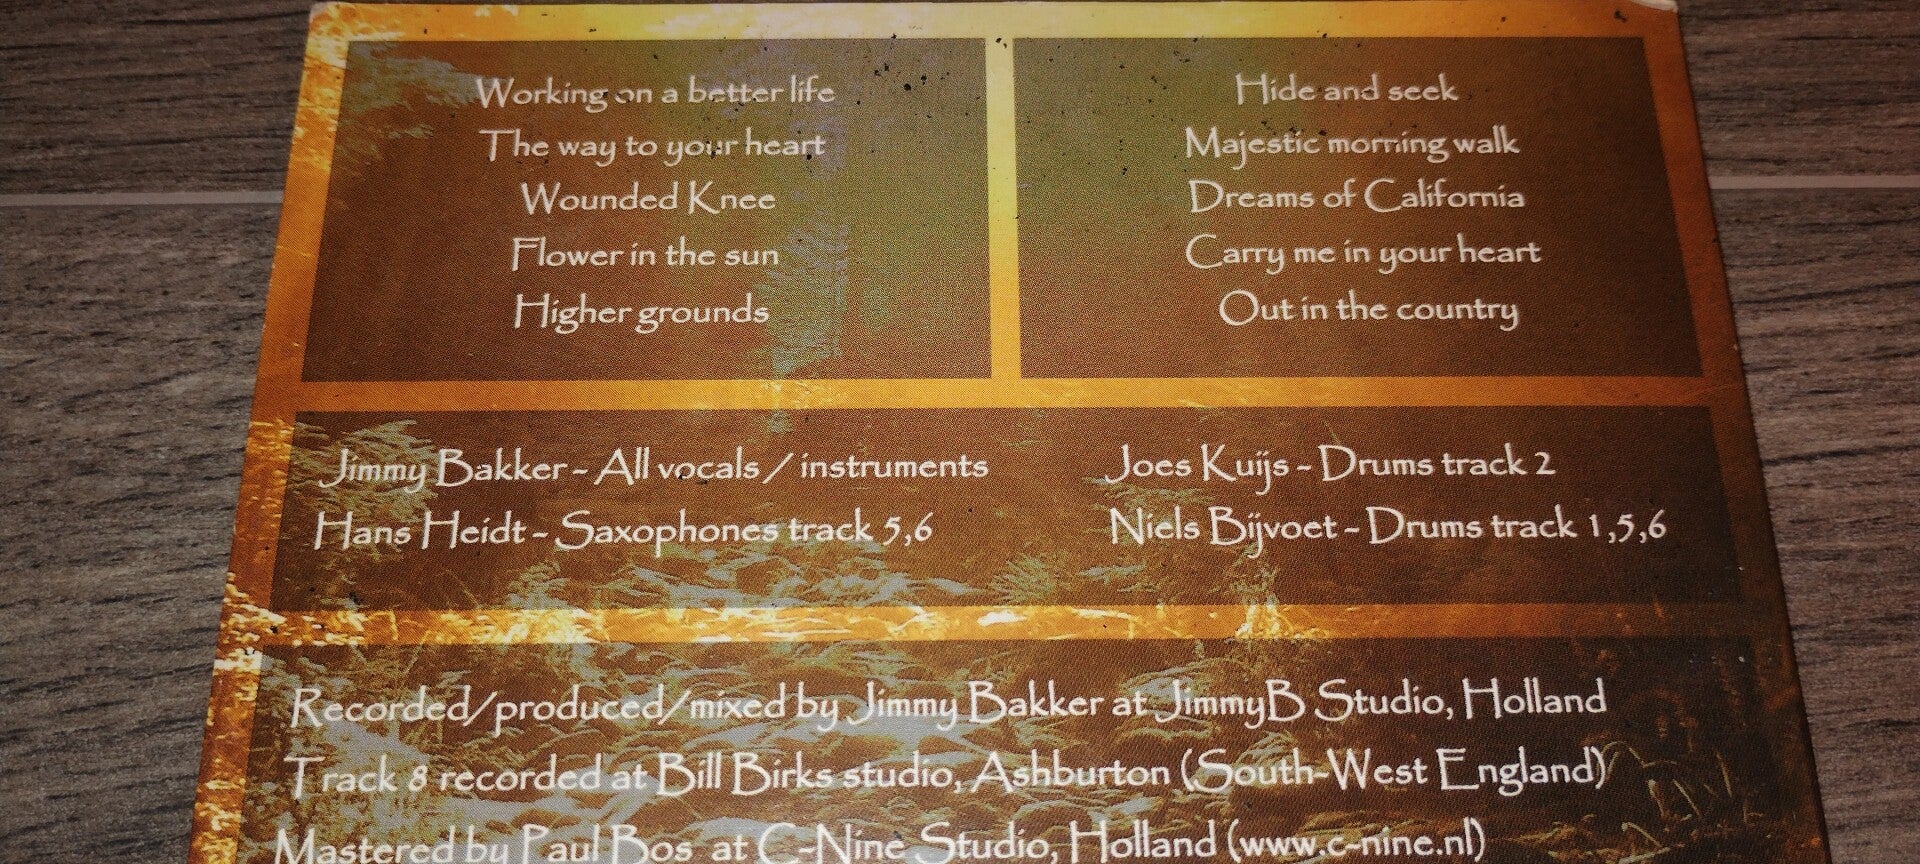 Working on a better life
The way to your heart
Wounded Knee
Flower in the sun
Higher grounds
Hide and seek
Majestic morning walk
Dreams of California
Carry me in your heart
Out in the country
Jimmy Bakker - All vocals / instruments
Hans Heidt - Saxophones track 5,6
Joes Kuijs - Drums track 2
Niels Bijvoet - Drums track 1,5,6
Recorded/produced/mixed by Jimmy Bakker at JimmyB Studio, Holland
Track 8 recorded at Bill Birks studio, Ashburton (South-West England)
Mastered by Paul Bos at C-Nine Studio, Holland (www.c-nine.nl)